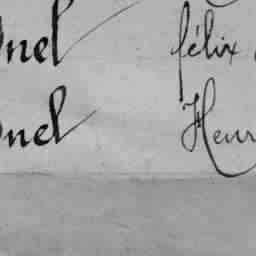 onel félix
onel Henr